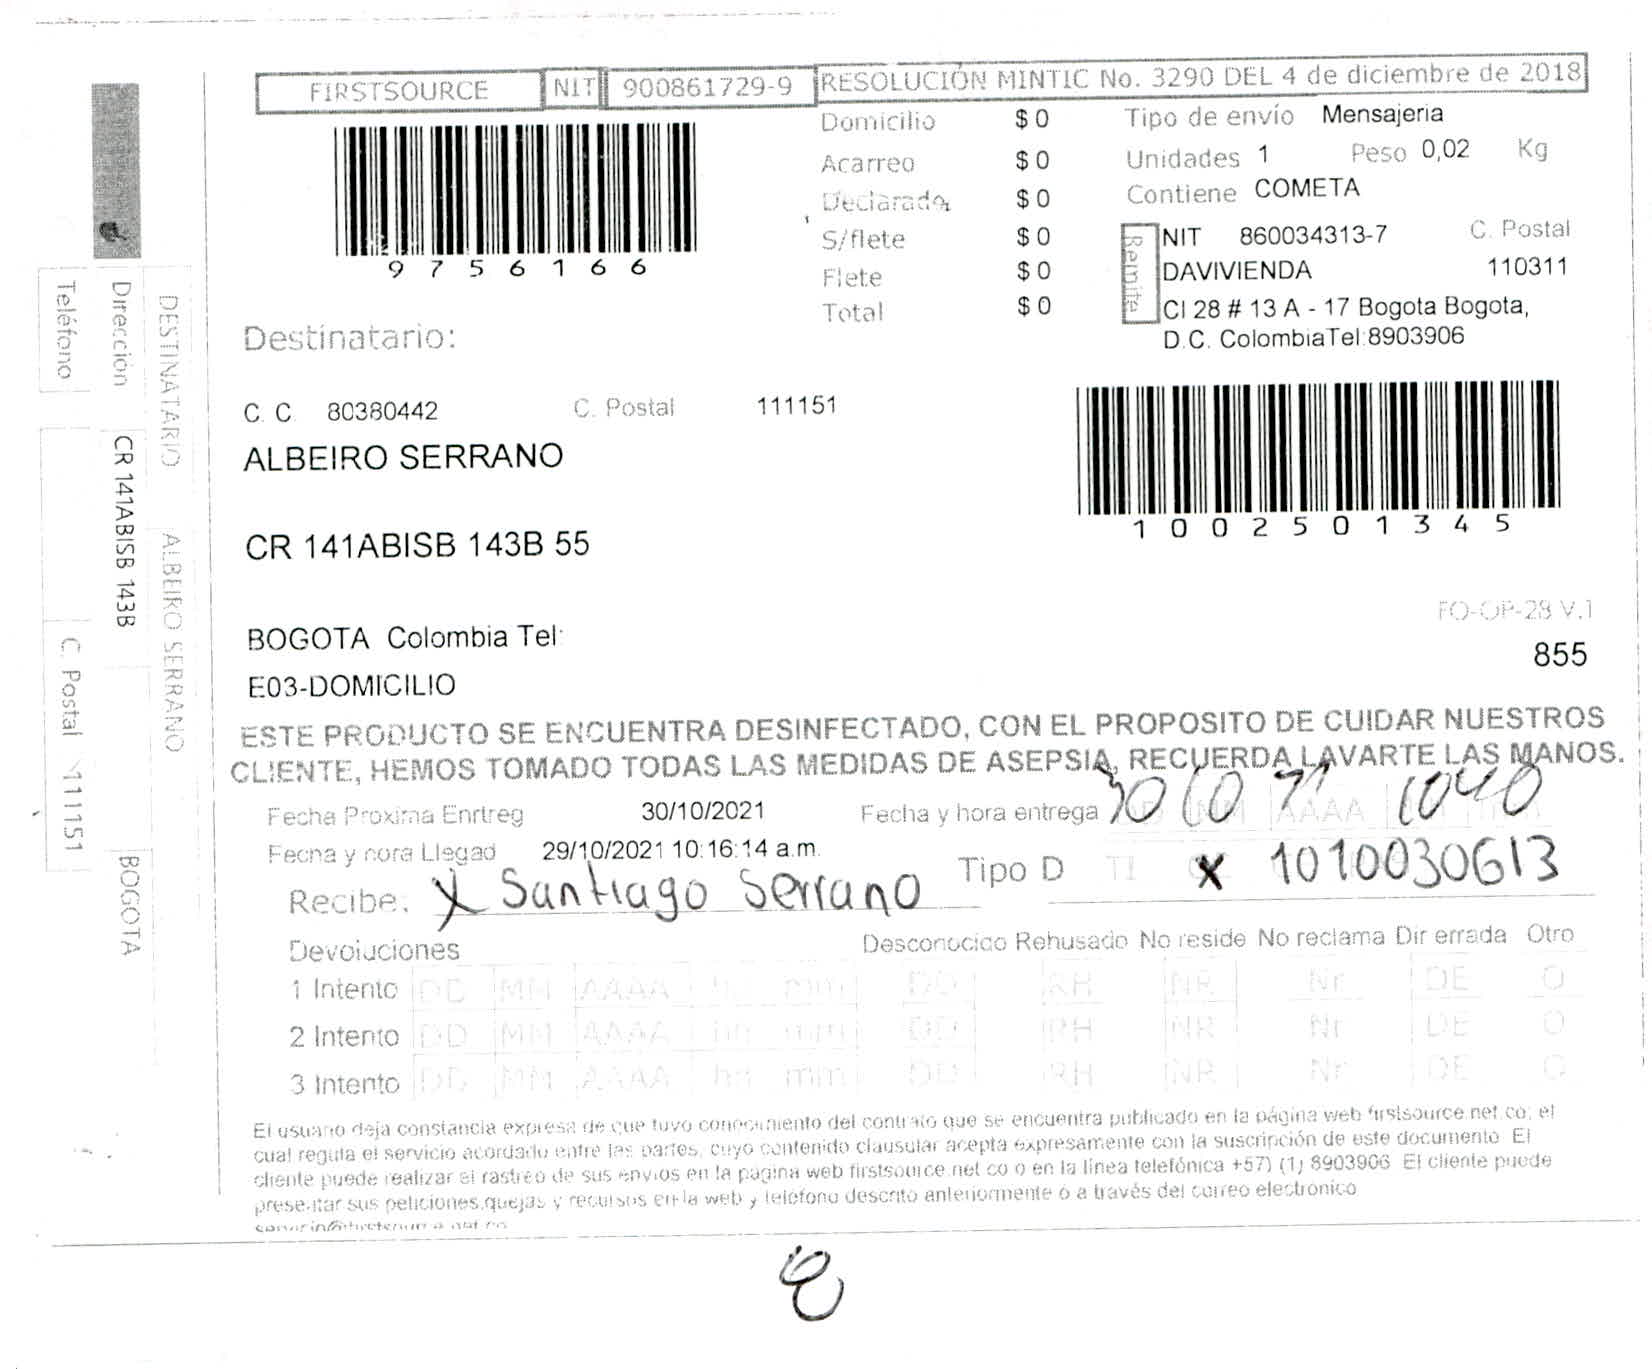 FIRSTSOURCE NIT 900861729-9 RESOLUCIÓN MINTIC No. 3290 DEL 4 de diciembre de 2018
9756166
Domicilio $ 0
Acarreo $ 0
Declarado $ 0
S/flete $ 0
Flete $ 0
Total $ 0
Tipo de envío Mensajeria
Unidades 1 Peso 0,02 Kg
Contiene COMETA
Remite
NIT 860034313-7 C. Postal
DAVIVIENDA 110311
Cl 28 # 13 A - 17 Bogota Bogota,
D.C. ColombiaTel:8903906
Destinatario:
C. C. 80380442 C. Postal 111151
ALBEIRO SERRANO
1002501345
CR 141ABISB 143B 55
FO-OP-28 V.1
BOGOTA Colombia Tel:
855
E03-DOMICILIO
ESTE PRODUCTO SE ENCUENTRA DESINFECTADO, CON EL PROPOSITO DE CUIDAR NUESTROS
CLIENTE, HEMOS TOMADO TODAS LAS MEDIDAS DE ASEPSIA, RECUERDA LAVARTE LAS MANOS.
Fecha Proxima Enrtreg 30/10/2021 Fecha y hora entrega 30 10 21 AAAA 1040
Fecha y hora Llegad 29/10/2021 10:16:14 a.m.
Recibe: X Santiago Serrano Tipo D TI X 1010030613
Devoluciones Desconocido Rehusado No reside No reclama Dir errada Otro
1 Intento DD MM AAAA hh mm DD RH NR Nr DE O
2 Intento DD MM AAAA hh mm DD RH NR Nr DE O
3 Intento DD MM AAAA hh mm DD RH NR Nr DE O
El usuario deja constancia expresa de que tuvo conocimiento del contrato que se encuentra publicado en la página web firstsource.net.co; el
cual regula el servicio acordado entre las partes, cuyo contenido clausular acepta expresamente con la suscripción de este documento. El
cliente puede realizar el rastreo de sus envios en la pagina web firstsource.net co o en la línea telefónica +57) (1) 8903906 El cliente puede
presentar sus peticiones,quejas y recursos en la web y telefono descrito anteriormente o a través del correo electronico
servicio@firstsource.net.co
DESTINATARIO ALBEIRO SERRANO
Dirección CR 141ABISB 143B BOGOTA
Teléfono C. Postal 111151